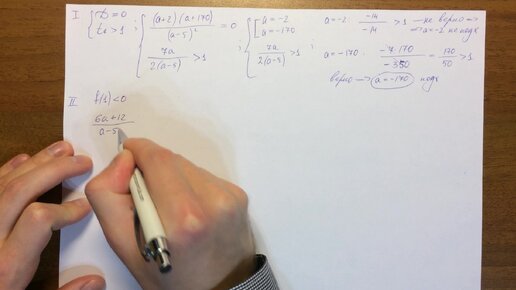 I { D = 0 ; t_в > 1 ; { (a+2)(a+170) / (a-5)² = 0 ; 7a / 2(a-5) > 1 ; { [ a = -2 ; a = -170 ; 7a / 2(a-5) > 1 ;
a = -2 : -14 / -14 > 1 – не верно ⇒
⇒ a = -2 не подх
a = -170 : -7·170 / -350 = 170 / 50 > 1
верно ⇒ a = -170 подх
II f(1) < 0
6a+12 / a-5